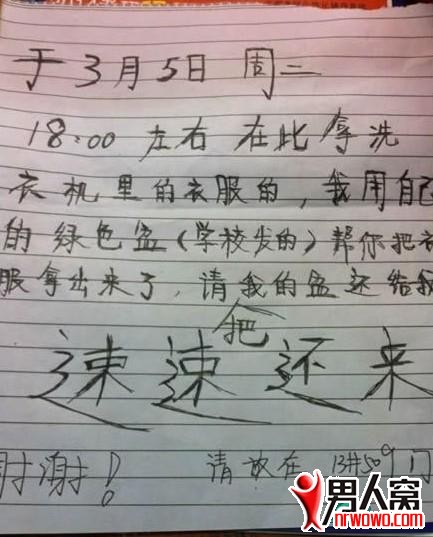 于3月5日 周二
18:00 左右 在此拿洗
衣机里的衣服的,我用自己
的绿色盆(学校发的)帮你把衣
服拿出来了,请我的盆还给我
把
速速还来
谢谢! 请放在 13#509门
男人窝
nrwowo.com